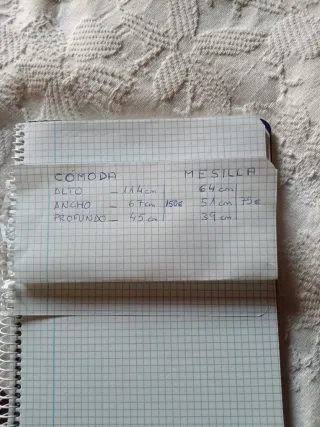 CÓMODA MESILLA
ALTO - 114 cm 64 cm
ANCHO - 67 cm 150€ 51 cm 75€
PROFUNDO - 45 cm 39 cm